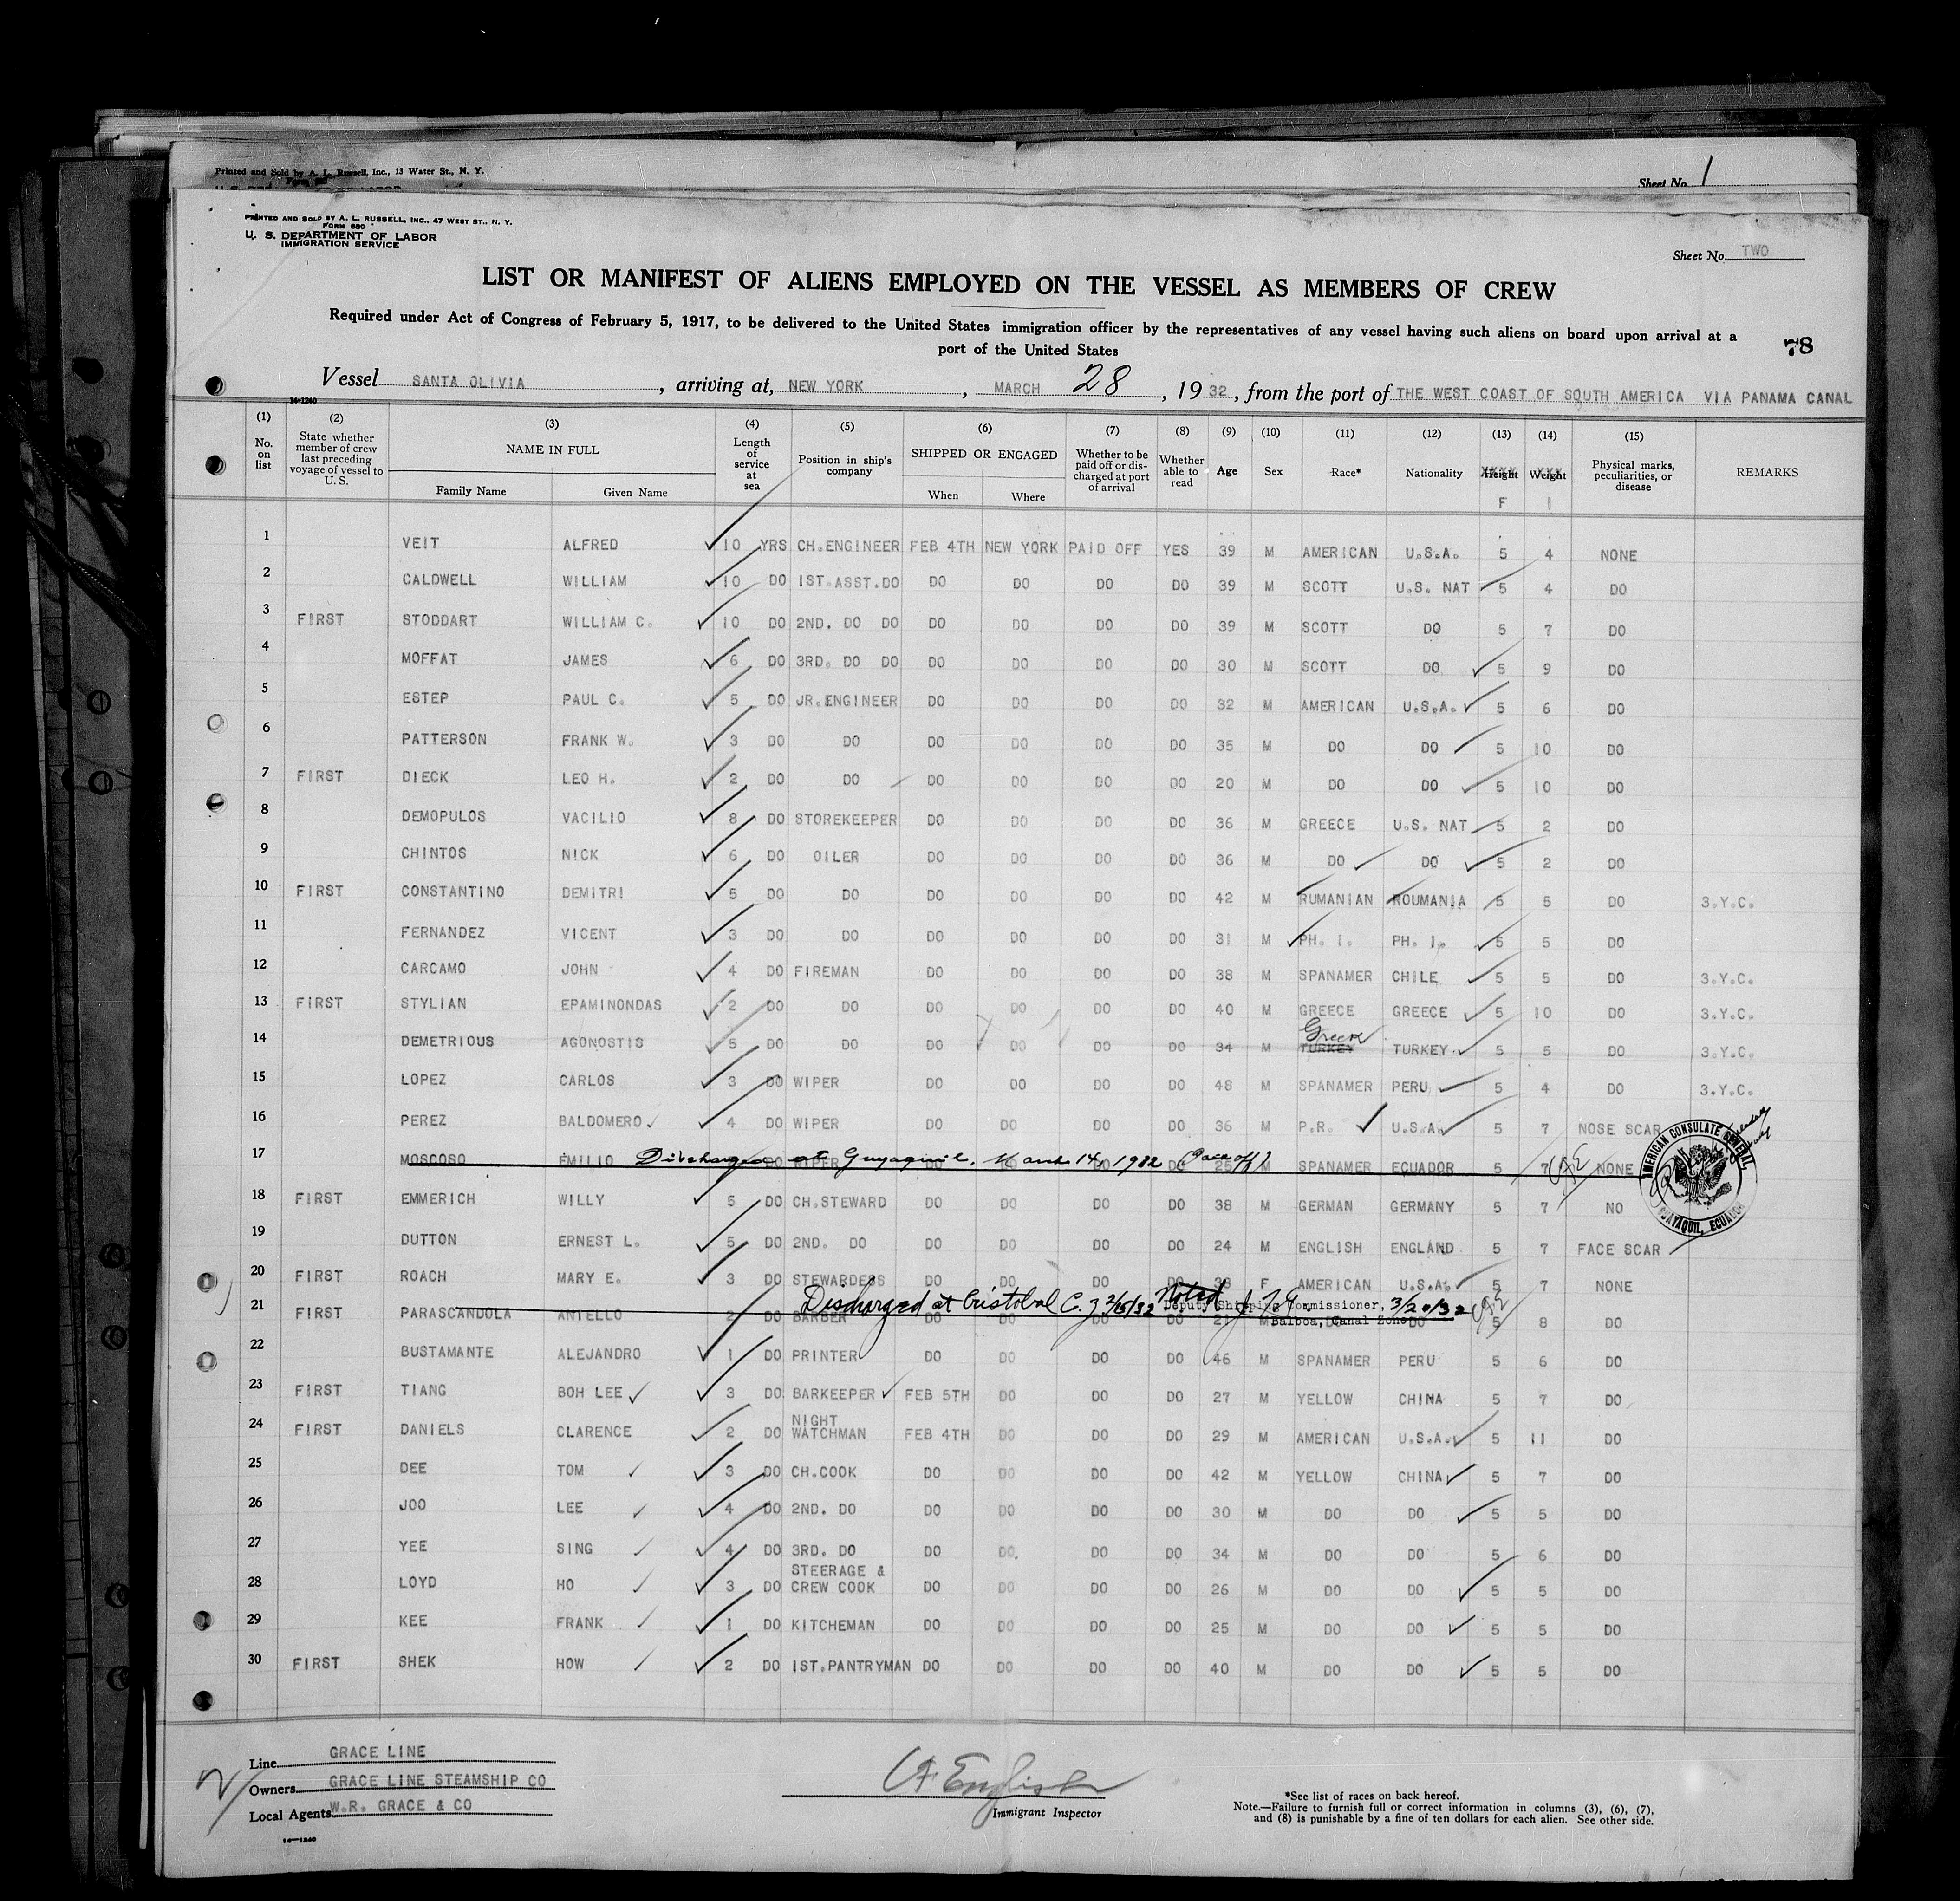 Printed and Sold by A. L. Russell, Inc., 13 Water St., N. Y.
Sheet No. 1
PRINTED AND SOLD BY A. L. RUSSELL, INC., 47 WEST ST., N. Y.
FORM 680
U. S. DEPARTMENT OF LABOR
IMMIGRATION SERVICE
Sheet No. TWO
LIST OR MANIFEST OF ALIENS EMPLOYED ON THE VESSEL AS MEMBERS OF CREW
Required under Act of Congress of February 5, 1917, to be delivered to the United States immigration officer by the representatives of any vessel having such aliens on board upon arrival at a
port of the United States
78
Vessel SANTA OLIVIA, arriving at, NEW YORK, MARCH 28, 1932, from the port of THE WEST COAST OF SOUTH AMERICA VIA PANAMA CANAL
14-1240
(1) (2) (3) (4) (5) (6) (7) (8) (9) (10) (11) (12) (13) (14) (15)
No. on list State whether member of crew last preceding voyage of vessel to U.S. NAME IN FULL Length of service at sea Position in ship's company SHIPPED OR ENGAGED Whether to be paid off or discharged at port of arrival Whether able to read Age Sex Race* Nationality Height Weight Physical marks, peculiarities, or disease REMARKS
Family Name Given Name When Where F I
1 VEIT ALFRED 10 YRS CH.ENGINEER FEB 4TH NEW YORK PAID OFF YES 39 M AMERICAN U.S.A. 5 4 NONE
2 CALDWELL WILLIAM 10 DO 1ST.ASST.DO DO DO DO DO 39 M SCOTT U.S. NAT 5 4 DO
3 FIRST STODDART WILLIAM C. 10 DO 2ND. DO DO DO DO DO DO 39 M SCOTT DO 5 7 DO
4 MOFFAT JAMES 6 DO 3RD. DO DO DO DO DO DO 30 M SCOTT DO 5 9 DO
5 ESTEP PAUL C. 5 DO JR.ENGINEER DO DO DO DO 32 M AMERICAN U.S.A. 5 6 DO
6 PATTERSON FRANK W. 3 DO DO DO DO DO DO 35 M DO DO 5 10 DO
7 FIRST DIECK LEO H. 2 DO DO DO DO DO DO 20 M DO DO 5 10 DO
8 DEMOPULOS VACILIO 8 DO STOREKEEPER DO DO DO DO 36 M GREECE U.S. NAT 5 2 DO
9 CHINTOS NICK 6 DO OILER DO DO DO DO 36 M DO DO 5 2 DO
10 FIRST CONSTANTINO DEMITRI 5 DO DO DO DO DO DO 42 M RUMANIAN ROUMANIA 5 5 DO 3.Y.C.
11 FERNANDEZ VICENT 3 DO DO DO DO DO DO 31 M PH. I. PH. I. 5 5 DO
12 CARCAMO JOHN 4 DO FIREMAN DO DO DO DO 38 M SPANAMER CHILE 5 5 DO 3.Y.C.
13 FIRST STYLIAN EPAMINONDAS 2 DO DO DO DO DO DO 40 M GREECE GREECE 5 10 DO 3.Y.C.
14 DEMETRIOUS AGONOSTIS 5 DO DO DO DO DO DO 34 M TURKEY Greek TURKEY 5 5 DO 3.Y.C.
15 LOPEZ CARLOS 3 DO WIPER DO DO DO DO 48 M SPANAMER PERU 5 4 DO 3.Y.C.
16 PEREZ BALDOMERO 4 DO WIPER DO DO DO DO 36 M P.R. U.S.A. 5 7 NOSE SCAR
17 MOSCOSO EMILIO Discharged at Guyaquil. March 14, 1932 DO WIPER DO DO DO DO 25 M SPANAMER ECUADOR 5 7 NONE
AMERICAN CONSULATE GENERAL, GUAYAQUIL, ECUADOR
18 FIRST EMMERICH WILLY 5 DO CH.STEWARD DO DO DO DO 38 M GERMAN GERMANY 5 7 NO
19 DUTTON ERNEST L. 5 DO 2ND. DO DO DO DO DO 24 M ENGLISH ENGLAND 5 7 FACE SCAR
20 FIRST ROACH MARY E. 3 DO STEWARDESS DO DO DO DO 38 F AMERICAN U.S.A. 5 7 NONE
Discharged at Cristobal C.Z 2/15/32 Noted Deputy Shipping Commissioner, 3/20/32
Balboa, Canal Zone
21 FIRST PARASCANDOLA ANIELLO 2 DO BARBER DO DO DO DO 21 M DO DO 5 8 DO
22 BUSTAMANTE ALEJANDRO 1 DO PRINTER DO DO DO DO 46 M SPANAMER PERU 5 6 DO
23 FIRST TIANG BOH LEE 3 DO BARKEEPER FEB 5TH DO DO DO 27 M YELLOW CHINA 5 7 DO
24 FIRST DANIELS CLARENCE 2 DO NIGHT WATCHMAN FEB 4TH DO DO DO 29 M AMERICAN U.S.A. 5 11 DO
25 DEE TOM 3 DO CH.COOK DO DO DO DO 42 M YELLOW CHINA 5 7 DO
26 JOO LEE 4 DO 2ND. DO DO DO DO DO 30 M DO DO 5 5 DO
27 YEE SING 4 DO 3RD. DO DO DO DO DO 34 M DO DO 5 6 DO
28 LOYD HO 3 DO STEERAGE & CREW COOK DO DO DO DO 26 M DO DO 5 5 DO
29 KEE FRANK 1 DO KITCHEMAN DO DO DO DO 25 M DO DO 5 5 DO
30 FIRST SHEK HOW 2 DO 1ST.PANTRYMAN DO DO DO DO 40 M DO DO 5 5 DO
Line GRACE LINE
Owners GRACE LINE STEAMSHIP CO
Local Agents W.R. GRACE & CO
14-1240
English
Immigrant Inspector
*See list of races on back hereof.
Note.—Failure to furnish full or correct information in columns (3), (6), (7),
and (8) is punishable by a fine of ten dollars for each alien. See other side.